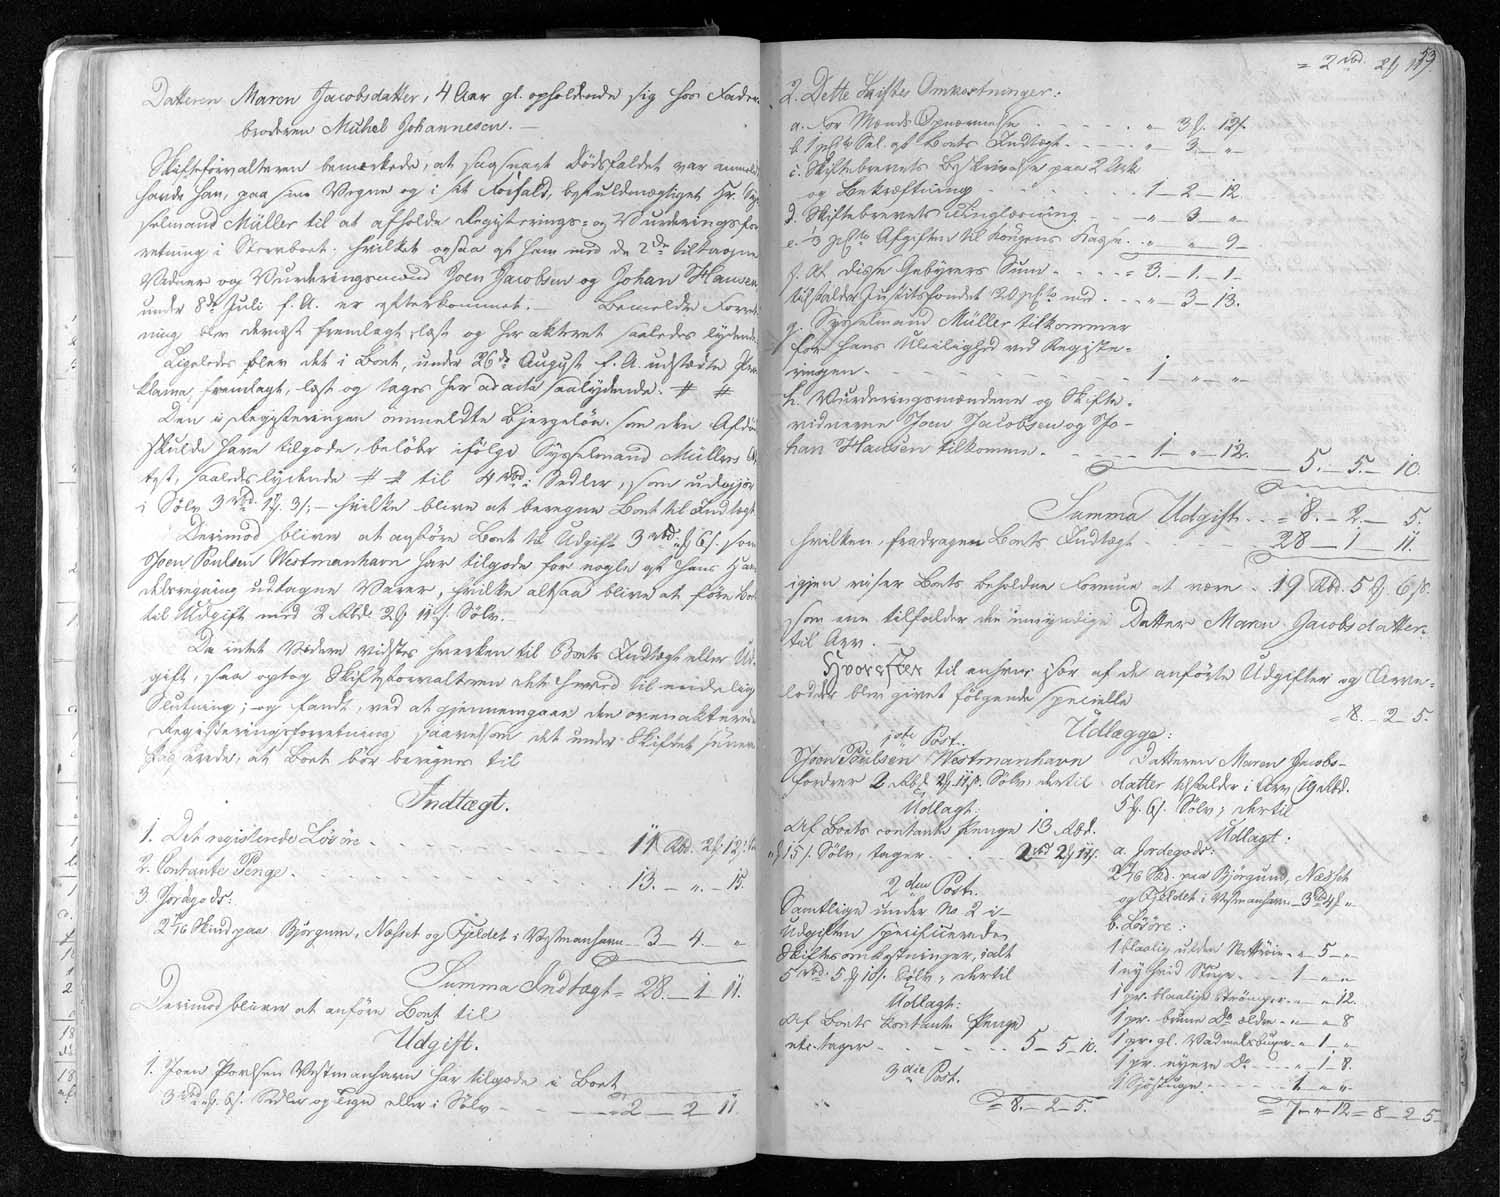 Datteren Maren Jacobsdatter, 4 Aar gl. opholdende sig hos Fader-
broderen Michel Johannesen. —
Skifteforvalteren bemærkede, at saasnart Dødsfaldet var anmeldt
havde han, paa sine Vegne og i sit Forfald, befuldmægtiget Hr. Sys-
selmand Müller til at afholde Registerings- og Vurderingsfor-
retning i Stervboet. hvilket ogsaa af ham med de 2de tilkaldte
Vidner og Vurderingsmænd Joen Jacobsen og Johan Hansen
under 8de Juli f. A. er efterkommet. — Bemeldte Forret-
ning blev dernæst fremlagt, læst og her akteret saaledes lydende
Ligeledes blev det i Boet, under 26de August f. A. udstædte Pro-
klama, fremlagt, læst og tages her ad acta saalydende. # #
Den i Registeringen ommeldte Bjergeløn, som den Afdøde
skulde have tilgode, beløber ifølge Sysselmand Müllers At-
test, saaledeslydende # # til 4 rbd. Sedler, som udgjør
i Sølv 3 rbd. 1 ₰. 3 s. — hvilke blive at beregne Boet til Indtægt.
Derimod bliver at anføre Boet til Udgift 3 rbd. 6 s. som
Joen Poulsen Westmanhavn har tilgode for nogle af hans Han-
delsregning udtagne Varer, hvilke altsaa blive at føre Boet
til Udgift med 2 Rbd. 2 ₰ 11 s. Sølv. —
Da intet Videre vidstes hverken til Boets Indtægt eller Ud-
gift, saa optog Skifteforvalteren det herved til endelig
Slutning; og fandt, ved at gjennemgaae den ovenakterede
Registeringsforretning saavelsom det under Skiftet
erede, at Boet bør beregnes til
Indtægt.
1. Det registerede Løsøre 11 Rbd. 2 ₰. 12 s.
2. Contante Penge. 13. — „ — 15.
3. Jordegods:
2 7/16 Skind paa Bjørgum, Næsset og Fjeldet i Westmanhavn 3 — 4 — „
Summa Indtægt = 28. — 1 — 11.
Derimod bliver at anføre Boet til
Udgift.
1. Joen Poulsen Westmanhavn har tilgode i Boet
3 rbd. „ ₰. 6 s. Sedler og Tegn eller i Sølv = 2 — 2 — 11
53.
= 2 rbd. 2 ₰ 11 s.
2. Dette Skiftes Omkostninger:
a. For Mænds Opnævnelse „ 3 ₰. 12 s.
b. 1 pCto Sal. af Boets Indtægt „ — 3 — „
c. Skiftebrevets Beskrivelse paa 2 Ark
og Bekræftning 1 — 2 — 12.
d. Skiftebrevets Tinglæsning „ — 3 — „
e. 1/3 pCto Afgiften til Kongens Kasse „ „ 9 —
f. Af disse Gebyrers Sum = 3. — 1 — 1 —
tilfalder Justitsfondet 20 pCto med „ — 3 — 13.
g. Sysselmand Müller tilkommer
for hans Uleilighed ved Registe-
ringen 1 — „ — „
h. Vurderingsmændene og Skifte-
vidnerne Joen Jacobsen og Jo-
han Hansen tilkomme 1 — „ — 12. 5. — 5. — 10
Summa Udgift = 8. — 2. — 5.
hvilken, fradragen Boets Indtægt 28 — 1 — 11.
igjen viser Boets beholdne Formue at være 19 Rbd. 5 ₰ 6 s.
som ene tilfalder den umyndige Datter Maren Jacobsdatter
til Arv. —
Hvorefter til enhver især af de anførte Udgifter og Arve-
lodder blev givet følgende specielle
Udlægge: = 8. — 2 — 5.
1ste Post.
Joen Poulsen Westmanhavn
fordrer 2 Rbd. 2 ₰ 11 s. Sølv; dertil
Udlagt:
Af Boets contante Penge 13 Rbd.
„ ₰ 15 s. Sølv, tager 2 rbd 2 ₰ 11 s.
2den Post.
Samtlige under No. 2 i
Udgiften specificerede
Skiftesomkostninger, ialt
5 rbd. 5 ₰ 10 s. Sølv; dertil
Udlagt:
Af Boets kontante Penge
etc. tager 5 — 5 — 10.
3die Post.
= 8. — 2 — 5.
Datteren Maren Jacobs-
datter tilfalder i Arv 19 Rbd.
5 ₰. 6 s. Sølv; dertil
Udlagt:
a. Jordegods:
2 7/16 Skd. paa Bjørgum, Næsset
og Fjeldet i Westmanhavn 3 rbd 4 ₰ „
b. Løsøre:
1 blaalig ulden Nattrøie „ — 5 — „
1 ny hvid Stüge 1 — „ — „
1 pr. blaalige Strømper „ — „ 12.
1 pr. brune Do. ældre „ — „ 8
1 pr. gl. Vadmelsbuxer „ — 1 — „
1 pr. nyere Do. „ — 1 — 8.
1 Sjøstüge 1 — „ — „
= 7 — „ — 12 = 8 — 2 — 5